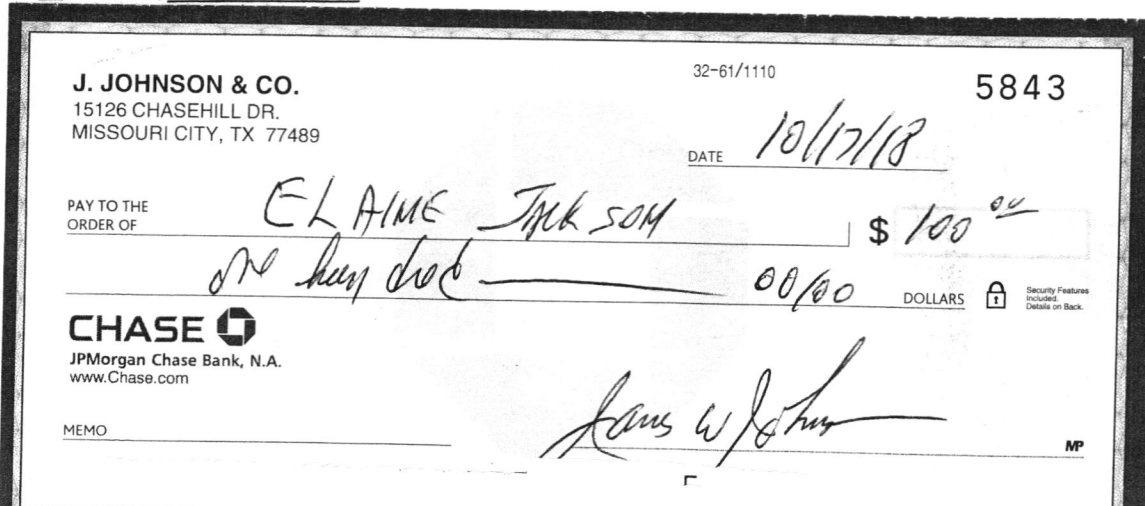 32-61/1110
5843
J. JOHNSON & CO.
15126 CHASEHILL DR.
MISSOURI CITY, TX 77489
DATE 10/17/18
PAY TO THE
ORDER OF ELAINE JACKSON $ 100 00
one hundred 00/00 DOLLARS
Security Features
Included.
Details on Back.
CHASE
JPMorgan Chase Bank, N.A.
www.Chase.com
MEMO
James W Johnson
MP